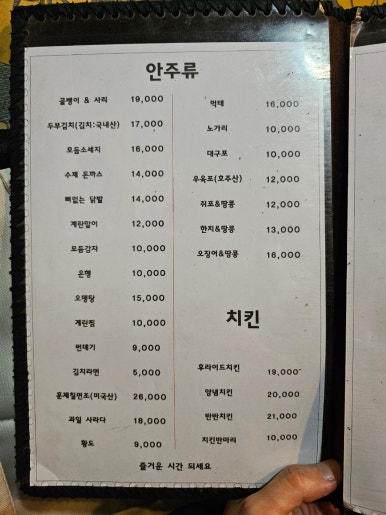 안주류
골뱅이 & 사리 19,000
두부김치(김치:국내산) 17,000
모듬소세지 16,000
수제 돈까스 14,000
뼈없는 닭발 14,000
계란말이 12,000
모듬감자 10,000
은행 10,000
오뎅탕 15,000
계란찜 10,000
번데기 9,000
김치라면 5,000
훈제칠면조(미국산) 26,000
과일 사라다 18,000
황도 9,000
먹태 16,000
노가리 10,000
대구포 10,000
우육포(호주산) 12,000
쥐포&땅콩 12,000
한치&땅콩 13,000
오징어&땅콩 16,000
치킨
후라이드치킨 19,000
양념치킨 20,000
반반치킨 21,000
치킨반마리 10,000
즐거운 시간 되세요